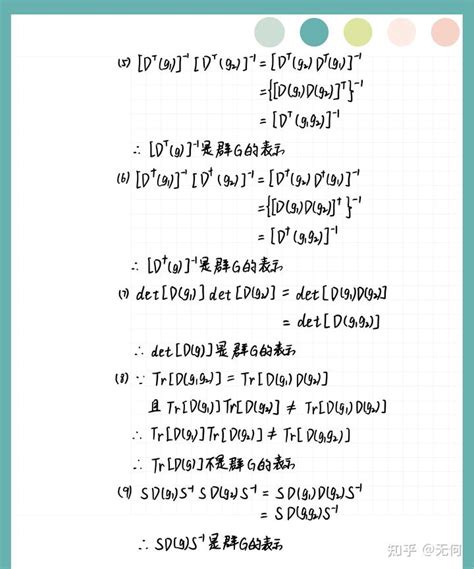 (5) [Dᵀ(g₁)]⁻¹[Dᵀ(g₂)]⁻¹ = [Dᵀ(g₂)Dᵀ(g₁)]⁻¹
= {[D(g₁)D(g₂)]ᵀ}⁻¹
= [Dᵀ(g₁g₂)]⁻¹
∴ [Dᵀ(g)]⁻¹是群G的表示
(6) [D†(g₁)]⁻¹[D†(g₂)]⁻¹ = [D†(g₂)D†(g₁)]⁻¹
= {[D(g₁)D(g₂)]†}⁻¹
= [D†(g₁g₂)]⁻¹
∴ [D†(g)]⁻¹是群G的表示
(7) det[D(g₁)]det[D(g₂)] = det[D(g₁)D(g₂)]
= det[D(g₁g₂)]
∴ det[D(g)]是群G的表示
(8) ∵ Tr[D(g₁g₂)] = Tr[D(g₁)D(g₂)]
且 Tr[D(g₁)]Tr[D(g₂)] ≠ Tr[D(g₁)D(g₂)]
∴ Tr[D(g₁)]Tr[D(g₂)] ≠ Tr[D(g₁g₂)]
∴ Tr[D(g)]不是群G的表示
(9) SD(g₁)S⁻¹SD(g₂)S⁻¹ = SD(g₁)D(g₂)S⁻¹
= SD(g₁g₂)S⁻¹
∴ SD(g)S⁻¹是群G的表示
知乎 @无何